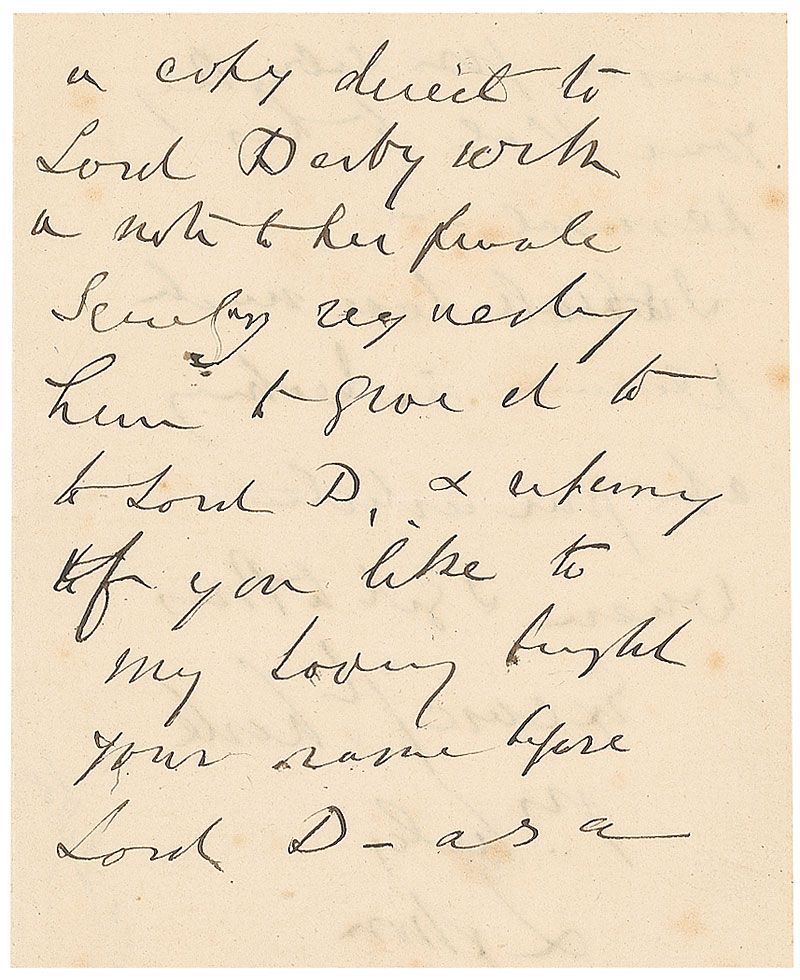 a copy direct to
Lord Derby with
a note to his private
Secretary requesting
him to give it to
to Lord D, & referring
if you like to
my having brought
your name before
Lord D - as a